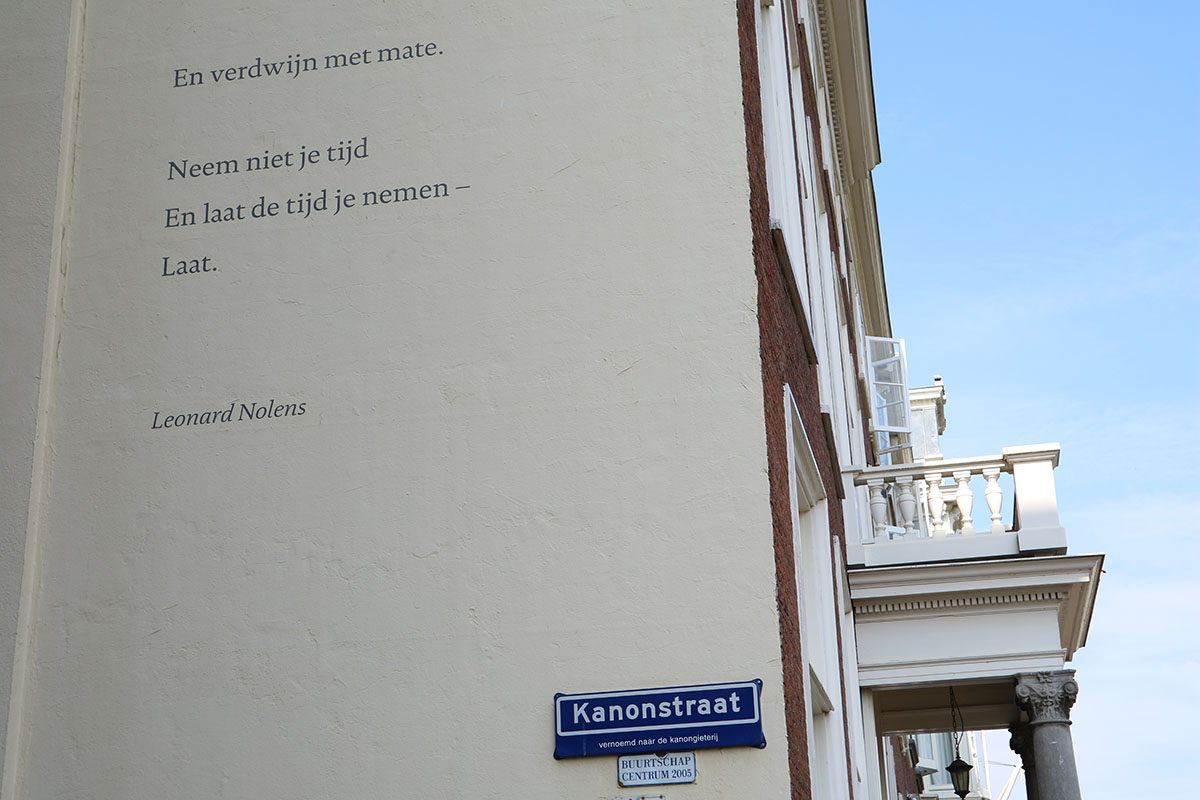 En verdwijn met mate.
Neem niet je tijd
En laat de tijd je nemen –
Laat.
Leonard Nolens
Kanonstraat
vernoemd naar de kanongieterij
BUURTSCHAP
CENTRUM 2005